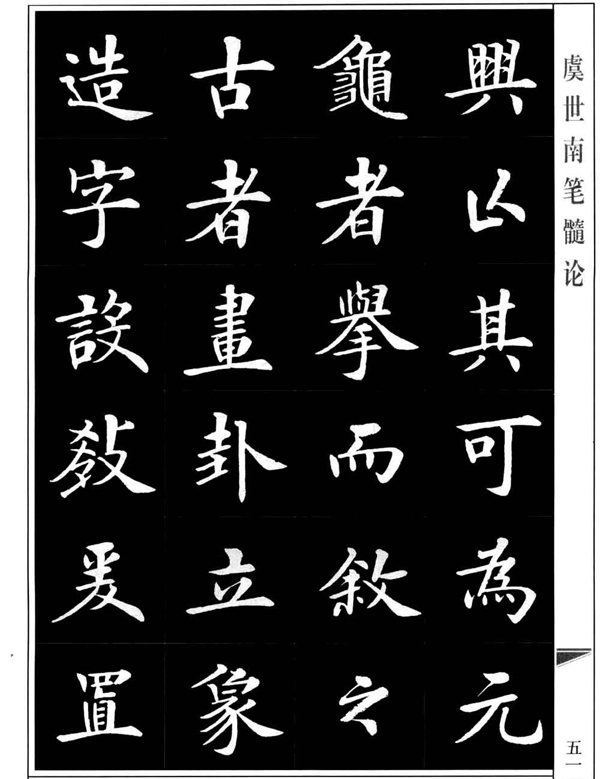 虞世南笔髓论
興以其可為元
龜者舉而敘之
古者畫卦立象
造字設教爰置
五一